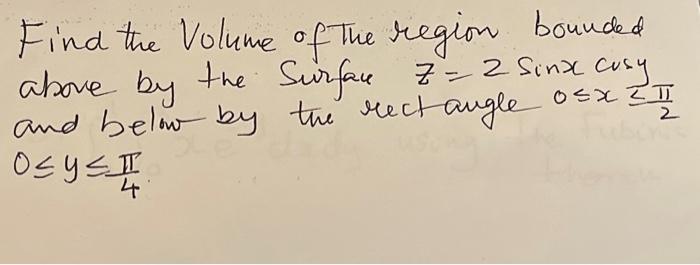 Find the Volume of The region bounded
above by the Surface Z = 2 Sinx cosy
and below by the rectangle 0≤x≤π/2
0≤y≤π/4